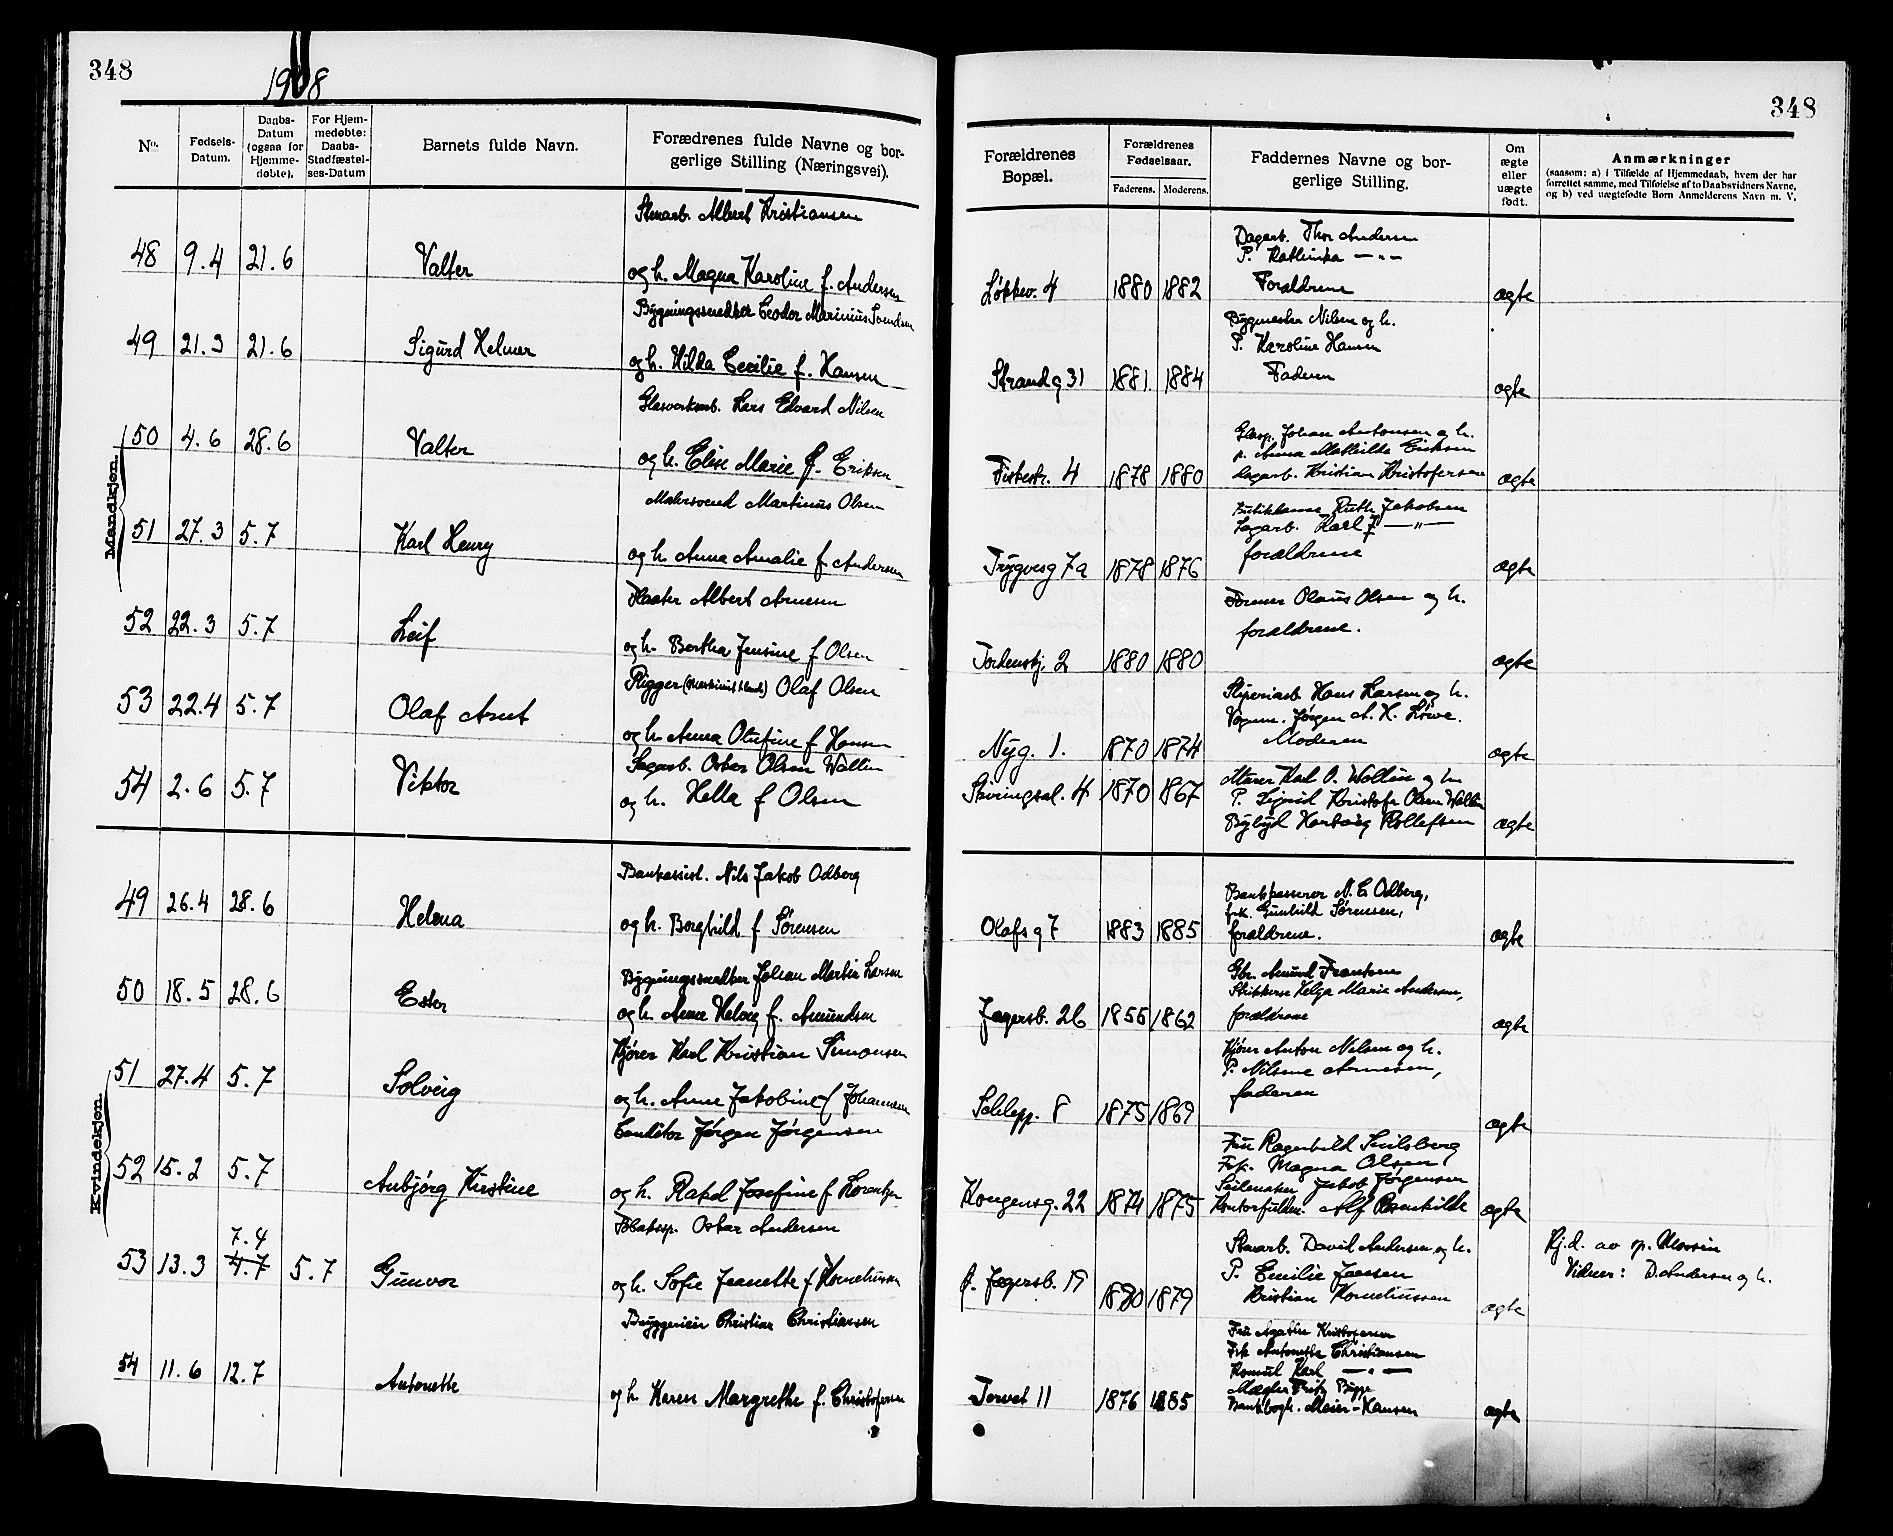 348
1908
No.
Fødsels-Datum.
Daabs-Datum (ogsaa for Hjemme-døbte).
For Hjem-medøbte: Daabs-Stadfæstel-ses-Datum
Barnets fulde Navn.
Forædrenes fulde Navne og bor-gerlige Stilling (Næringsvei).
348
Forældrenes Bopæl.
Forældrenes Fødselsaar.
Faderens. Moderens.
Faddernes Navne og bor-gerlige Stilling.
Om ægte eller uægte født.
Anmærkninger
(saasom: a) i Tilfælde af Hjemmedaab, hvem der har
forrettet samme, med Tilføielse af to Daabsvidners Navne,
og b) ved uægtefødte Børn Anmelderens Navn m. V.
Mandkjøn.
Stenarb. Albert Kristiansen
48 9.4 21.6 Valter og h. Magna Karoline f. Andersen
Løkkev. 4 1880 1882
Dagarb. Thor Andersen
P. Kathinka — " —
Forældrene ægte
Bygningssnedker Teodor Marinius Svendsen
49 21.3 21.6 Sigurd Helmer og h. Hilda Cecilie f. Hansen
Strandg 31 1881 1884
Bygmester Nilsen og h.
P. Karoline Hansen
Faderen ægte
Glasverksarb. Lars Edvard Nilsen
50 4.6 28.6 Valter og h. Elise Marie f. Eriksen
Fiskestr. 4 1878 1880
Glasp. Johan Antonsen og h.
p. Anna Mathilde Eriksen
dagarb. Kristian Kristofersen ægte
Malersvend Martinus Olsen
51 27.3 5.7 Karl Henry og h. Anna Amalie f. Andersen
Trygvesg 7a 1878 1876
Ruth Jakobsen
Karl J — " —
forældrene ægte
Albert Arnesen
52 22.3 5.7 Leif og h. Bertha Jensine f Olsen
Tordenskj. 2 1880 1880
Former Olaus Olsen og h.
forældrene. ægte
Rigger Olaf Olsen
53 22.4 5.7 Olaf Arnt og h. Anna Olufine f Hansen
Nyg. 1. 1870 1874
Hans Larsen og h.
Vognm. Jørgen A. H. Løwe.
Moderen ægte
Sagarb. Oskar Olsen Wallin
54 2.6 5.7 Viktor og h. Hella f Olsen
Skiringssal. 4 1870 1867
Murer Karl O. Wallin og h.
P. Sigrid Kristofa Olsen Wallin
Bybud Hartvig Rollefsen ægte
Kvindekjøn.
Bankassist. Nils Jakob Odberg
49 26.4 28.6 Helena og h. Borghild f Sørensen
Olafsg 7 1883 1885
Bankkasserer N. C. Odberg,
frk. Gunhild Sørensen,
forældrene. ægte
Bygningssnedker Johan Martin Larsen
50 18.5 28.6 Ester og h. Anne Helvig f. Amundsen
Jegersb. 26 1855 1862
Gbr. Amund Frantsen
Strikkerske Helga Marie Andersen,
forældrene ægte
Kjører Karl Kristian Simonsen
51 27.4 5.7 Solveig og h. Anne Jakobine f Johansen
Schlepp. 8 1875 1869
Kjører Anton Nilsen og h.
P. Nilsine Arnesen,
faderen ægte
Conditor Jørgen Jørgensen
52 15.2 5.7 Anbjørg Kirstine og h. Rakel Josefine f Lorentzen
Kongensg. 22 1874 1875
Fru Ragnhild Snilsberg
Frk. Magna Olsen
Seilmaker Jakob Jørgensen
Kontorfuldm. Alf Rosenkilde ægte
Oskar Andersen
7.4
53 13.3 4.7 5.7 Gunvor og h. Sofie Jeanette f Korneliussen
f. Jegersb. 19 1880 1879
Stenarb. David Andersen og h.
P. Emilie Jansen
Kristian Korneliussen ægte
Hj.d. av sp. Morsin
Vidner: D. Andersen og h.
Bryggerieier Christian Christiansen
54 11.6 12.7 Antonette og h. Karen Margrethe f. Christofersen
Torvet 11 1876 1885
Fru Agathe Kristofersen
Frk Antonette Christiansen
Konsul Karl — " —
Mægler Fritz Bugge
Bankbogh. Meier-Hansen ægte